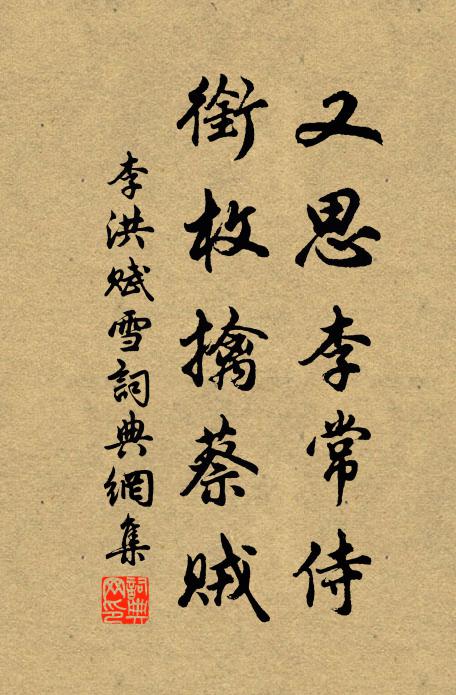 又思李常侍
銜枚擒蔡賊
李洪賦雪詞典網集
詞典网印